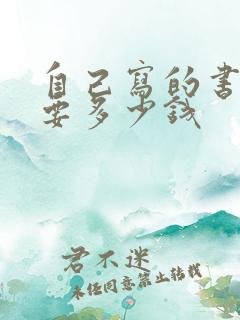 自己寫的書
要多少錢
君不迷
未經同意禁止轉載